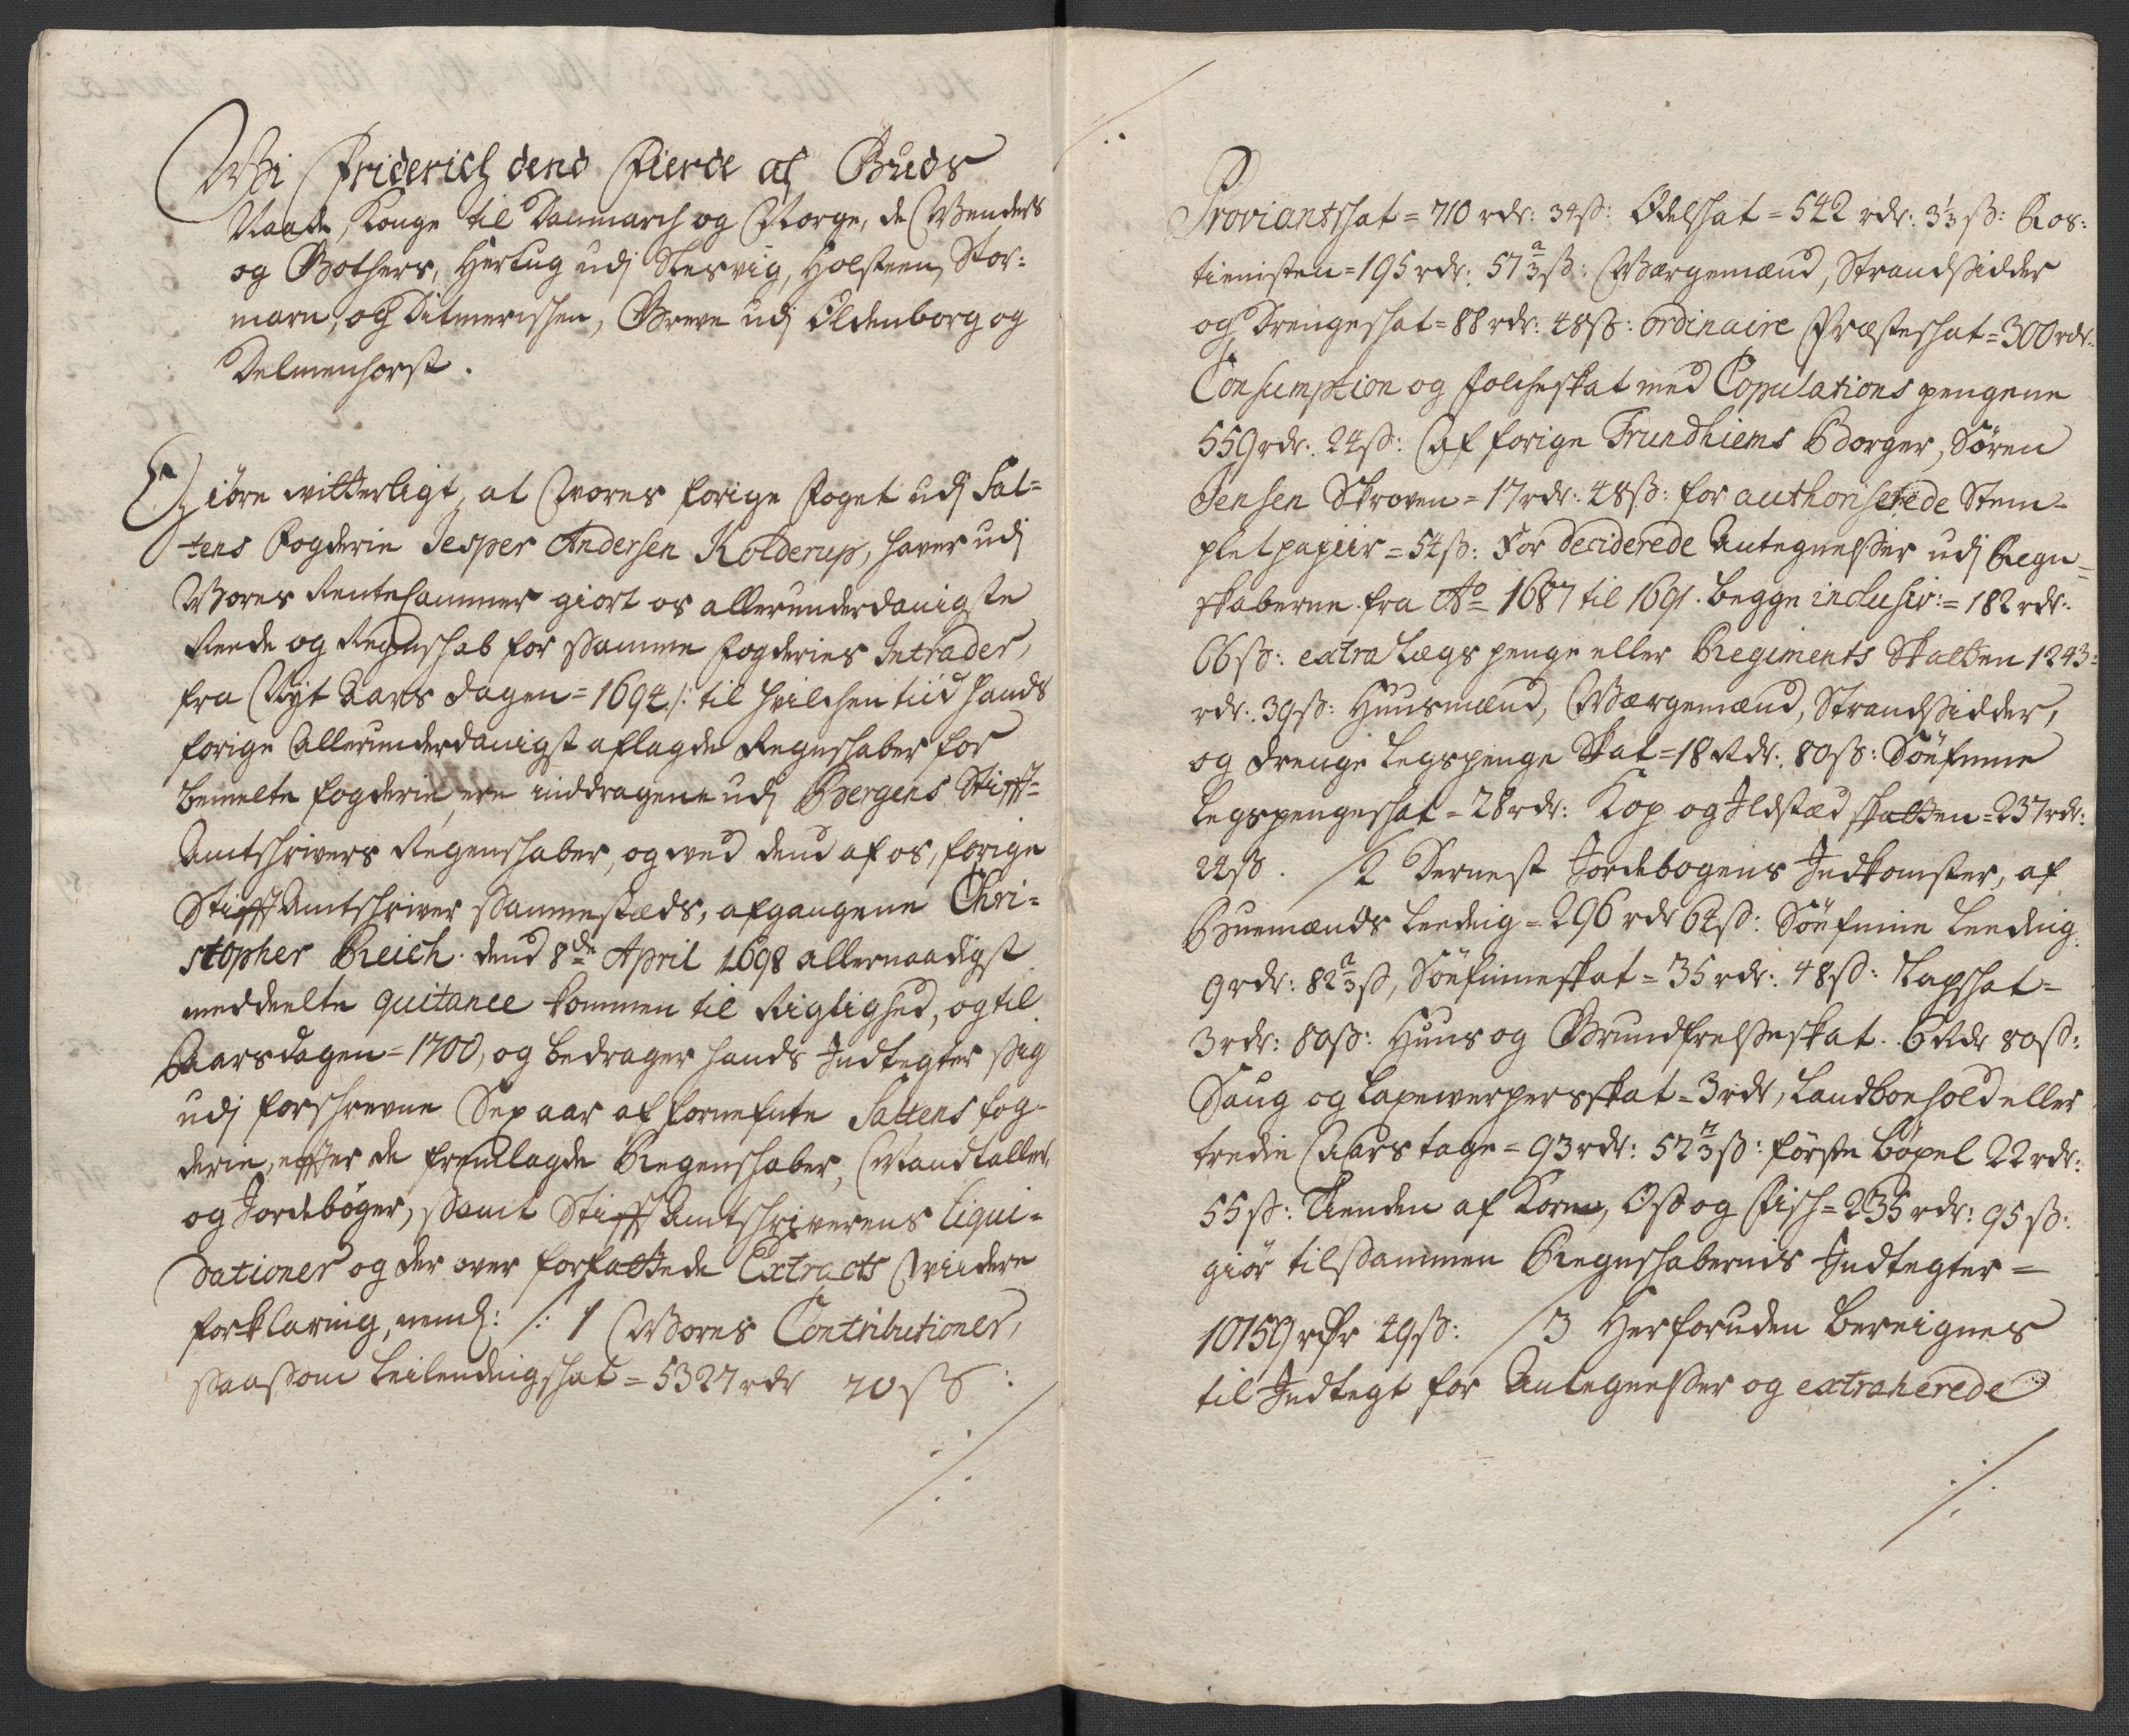 Wi Friderich dend Fierde af Guds
Naade, Konge til Danmarch og Norge, de Wenders
og Gothers, Hertug udj Slesvig, Holsteen, Stor-
marn, og Ditmerschen, Greve udj Oldenborg og
Delmenhorst.
Giöre witterligt, at Wores forige Foget udj Sal-
tens Fogderie Jesper Andersen Kolderup, haver udj
Wores RenteCammer giort os allerunderdanigste
Reede og Regnschab for Samme Fogderies Intrader,
fra Nyt Aars dagen = 1694 /: til hvilchen tiid hands
forige Allerunderdanigst aflagde Regnschaber for
bemelte fogderie, ere inddragene udj Bergens Stifft-
Amtschrivers Regenschaber, og wed dend af os, forige
StifftAmtschriver Sammestæds, afgangene Chri-
stopher Reich dend 8de April 1698 allernaadigst
meddeelte quitance kommen til Rigtighed, og til
Aarsdagen = 1700, og bedrager hands Indtegter Sig
udj forschrevne Sex aar af fornefnte Saltens fog-
derie, effter de fremlagde Regenschaber, Mandtaller,
og Jordebøger, Samt StifftAmtschriverens Liqui-
dationer og der over forfattede Extracts Wiidere
forklaring, neml: /: 1 Wores Contributioner,
Saasom Leilendingschat = 5327 rdr 20 ß:
Proviantschat = 710 rdr: 34 ß: Odelschat = 542 rdr: 3 1/3 ß: Ros-
tienisten = 195 rdr: 57 2/3 ß: Wærgemænd, Strandsidder
og Drengeschat = 88 rdr: 48 ß: ordinaire Præsteschat = 300 rdr:
Consumption og Folcheskat med Copulations pengene
559 rdr: 24 ß: Af forige Trundhiems Borger, Sören
Jensen Skroven = 17 rdr: 48 ß: for authoriserede Stem-
plet papiir = 54 ß: For deciderede Antegnelser udj Regn-
skaberne fra Ao 1687 til 1691. begge inclusiv: = 182 rdr:
66 ß: extra Lægs penge eller Regiments Skatten 1243
rdr: 39 ß: Huusmænd, Wærgemænd, Strandsidder,
og drenge Legspenge Skat = 18 Rdr: 80 ß: Söefinne
Legspengeschat = 28 rdr: Kop og Ildstæd skatten = 237 rdr:
24 ß. /2 Dernest Jordebogens Indkomster, af
Buemænds Leeding = 296 rdr 64 ß: Söefinne Leeding
9 rdr: 82 2/3 ß, Söefinneskat = 35 rdr: 48 ß: Lapschat =
3 rdr: 80 ß: Huus og Grundfrelseskat. 6 Rdr 80 ß:
Saug og Lapewerpersskat = 3 rdr, Landboehold eller
tredie Aars tage = 93 rdr: 52 2/3 ß: förste böxel 22 rdr:
55 ß: Tienden af Korn, Ost og Fisch = 235 rdr: 95 ß:
giör tilsammen Regnschabernis Indtegter =
10159 rdr 49 ß: /3 Herforuden bereignes
til Indtegt for Antegnelser og extraherede